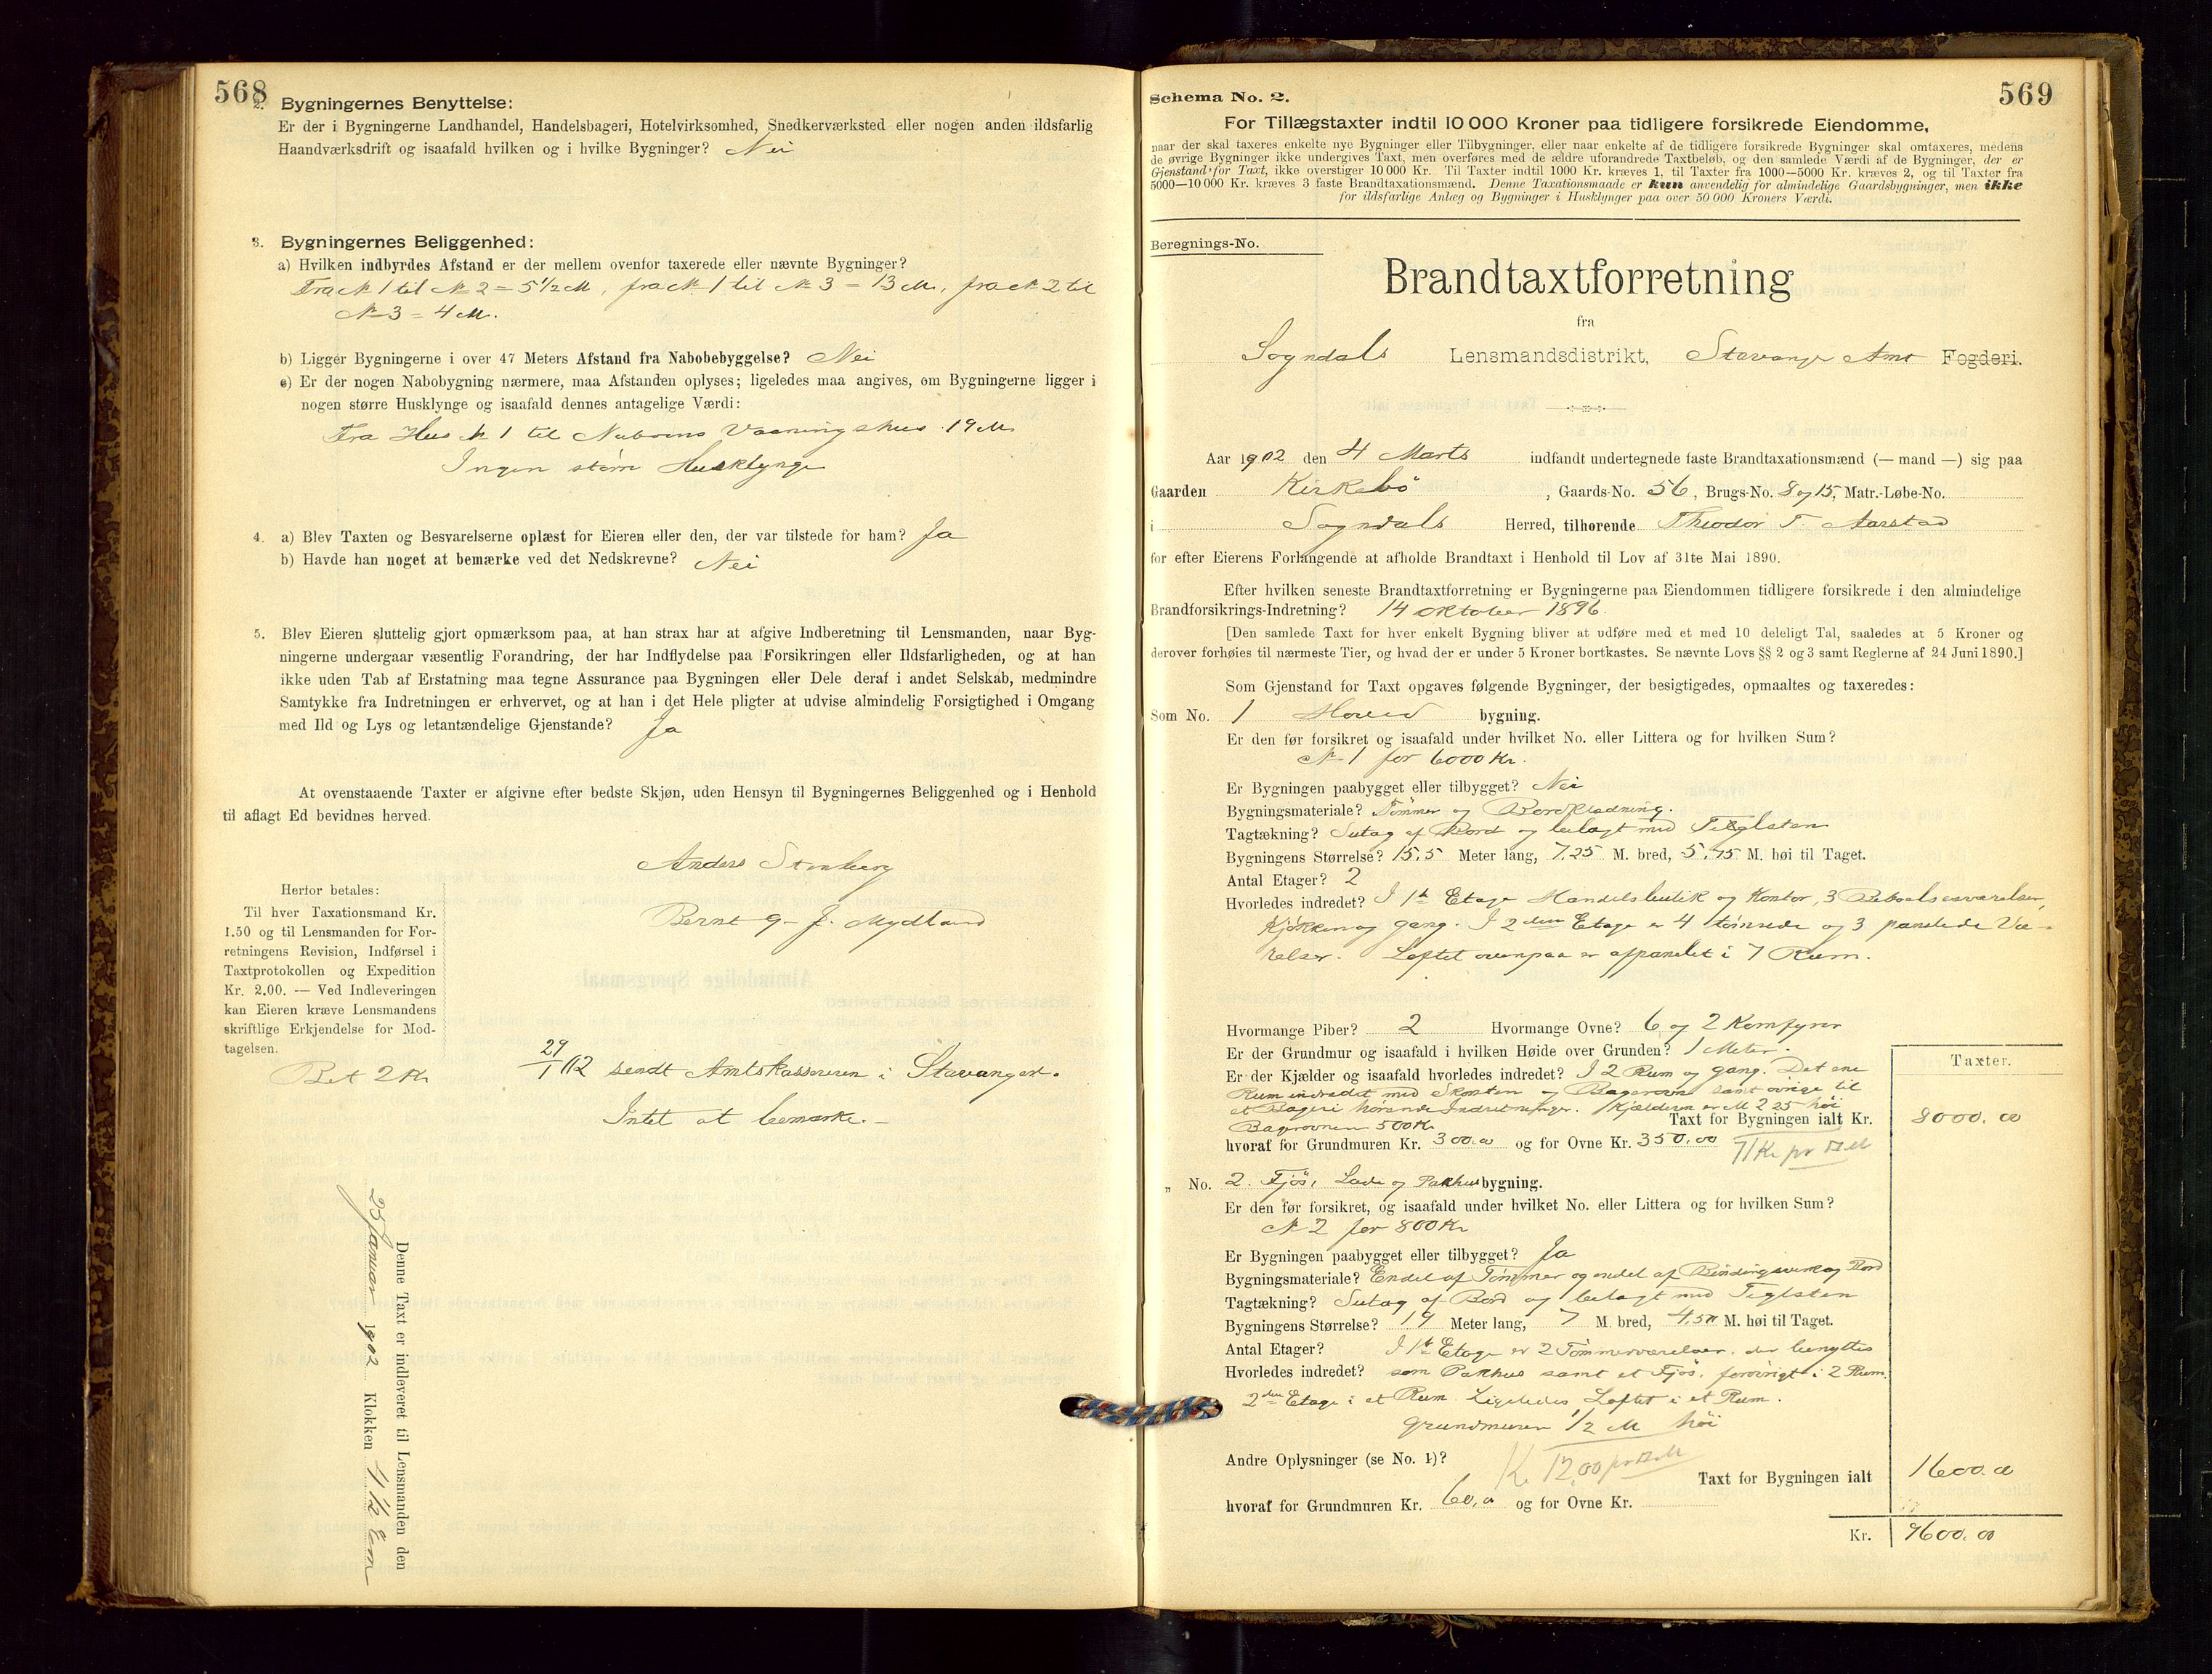 568
2. Bygningernes Benyttelse:
Er der i Bygningerne Landhandel, Handelsbageri, Hotelvirksomhed, Snedkerværksted eller nogen anden ildsfarlig
Haandværksdrift og isaafald hvilken og i hvilke Bygninger? Nei
3. Bygningernes Beliggenhed:
a) Hvilken indbyrdes Afstand er der mellem ovenfor taxerede eller nævnte Bygninger?
Fra N 1 til N 2 = 5 1/2 M, fra N 1 til N 3 = 13 M, fra N 2 til
N 3 = 4 M.
b) Ligger Bygningerne i over 47 Meters Afstand fra Nabobebyggelse? Nei
c) Er der nogen Nabobygning nærmere, maa Afstanden oplyses; ligeledes maa angives, om Bygningerne ligger i
nogen større Husklynge og isaafald dennes antagelige Værdi:
Fra Hus N 1 til Naboens Vaaningshus 19 M
Ingen større Husklynge
4. a) Blev Taxten og Besvarelserne oplæst for Eieren eller den, der var tilstede for ham? Ja
b) Havde han noget at bemærke ved det Nedskrevne? Nei
5. Blev Eieren sluttelig gjort opmærksom paa, at han strax har at afgive Indberetning til Lensmanden, naar Byg-
ningerne undergaar væsentlig Forandring, der har Indflydelse paa Forsikringen eller Ildsfarligheden, og at han
ikke uden Tab af Erstatning maa tegne Assurance paa Bygningen eller Dele deraf i andet Selskab, medmindre
Samtykke fra Indretningen er erhvervet, og at han i det Hele pligter at udvise almindelig Forsigtighed i Omgang
med Ild og Lys og letantændelige Gjenstande? Ja
At ovenstaaende Taxter er afgivne efter bedste Skjøn, uden Hensyn til Bygningernes Beliggenhed og i Henhold
til aflagt Ed bevidnes herved.
Anders Stenberg
Bernt G. J. Mydland
Herfor betales:
Til hver Taxationsmand Kr.
1.50 og til Lensmanden for For-
retningens Revision, Indførsel i
Taxtprotokollen og Expedition
Kr. 2.00. — Ved Indleveringen
kan Eieren kræve Lensmandens
skriftlige Erkjendelse for Mod-
tagelsen.
Bet 2 Kr
29/1 02 sendt Amtskassereren i Stavanger.
Intet at bemærke. -
Denne Taxt er indleveret til Lensmanden den
25 Januar 1902 Klokken 4 1/2 Em
569
Schema No. 2.
For Tillægstaxter indtil 10 000 Kroner paa tidligere forsikrede Eiendomme,
naar der skal taxeres enkelte nye Bygninger eller Tilbygninger, eller naar enkelte af de tidligere forsikrede Bygninger skal omtaxeres, medens
de øvrige Bygninger ikke undergives Taxt, men overføres med de ældre uforandrede Taxtbeløb, og den samlede Værdi af de Bygninger, der er
Gjenstand for Taxt, ikke overstiger 10 000 Kr. Til Taxter indtil 1000 Kr. kræves 1, til Taxter fra 1000—5000 Kr. kræves 2, og til Taxter fra
5000—10 000 Kr. kræves 3 faste Brandtaxationsmænd. Denne Taxationsmaade er kun anvendelig for almindelige Gaardsbygninger, men ikke
for ildsfarlige Anlæg og Bygninger i Husklynger paa over 50 000 Kroners Værdi.
Beregnings-No.
Brandtaxtforretning
fra
Sogndals Lensmandsdistrikt, Stavanger Amt Fogderi.
Aar 1902 den 4 Marts indfandt undertegnede faste Brandtaxationsmænd (— mand —) sig paa
Gaarden Kirkebö, Gaards-No. 56, Brugs-No. 8 og 15, Matr.-Løbe-No.
i Sogndals Herred, tilhørende Theodor T. Aarstad
for efter Eierens Forlangende at afholde Brandtaxt i Henhold til Lov af 31te Mai 1890.
Efter hvilken seneste Brandtaxtforretning er Bygningerne paa Eiendommen tidligere forsikrede i den almindelige
Brandforsikrings-Indretning? 14 Oktober 1896.
[Den samlede Taxt for hver enkelt Bygning bliver at udføre med et med 10 deleligt Tal, saaledes at 5 Kroner og
derover forhøies til nærmeste Tier, og hvad der er under 5 Kroner bortkastes. Se nævnte Lovs §§ 2 og 3 samt Reglerne af 24 Juni 1890.]
Som Gjenstand for Taxt opgaves følgende Bygninger, der besigtigedes, opmaaltes og taxeredes:
Som No. 1 Hoved bygning.
Er den før forsikret og isaafald under hvilket No. eller Littera og for hvilken Sum?
N 1 for 6000 Kr.
Er Bygningen paabygget eller tilbygget? Nei
Bygningsmateriale? Tömmer og Bordklædning.
Tagtækning? Sutag af Bord og belagt med Teglsten
Bygningens Størrelse? 15,5 Meter lang, 7,25 M. bred, 5,75 M. høi til Taget.
Antal Etager? 2
Hvorledes indredet? I 1ste Etage Handelsbutik og Kontor, 3 Beboelsesværelser,
Kjøkken og gang. I 2den Etage er 4 tömrede og 3 panelede Væ-
relser. Loftet ovenpaa er afpanelet i 7 Rum.
Hvormange Piber? 2 Hvormange Ovne? 6 og 2 Komfyrer
Er der Grundmur og isaafald i hvilken Høide over Grunden? 1 Meter.
Er der Kjælder og isaafald hvorledes indredet? I 2 Rum og gang. Det ene
Rum indredet med Skorsten og Bagerovn samt øvrige til
et Bageri hørende Indretninger. Kjælderen er M 2,25 høi
Bagerovnen 500 Kr
Taxter.
Taxt for Bygningen ialt Kr. 8000.00
hvoraf for Grundmuren Kr. 300.00 og for Ovne Kr. 350.00 71 Kr pr □ M
„ No. 2. Fjös, Lade og Pakhus bygning.
Er den før forsikret, og isaafald under hvilket No. eller Littera og for hvilken Sum?
N 2 for 800 Kr
Er Bygningen paabygget eller tilbygget? Ja
Bygningsmateriale? Endel af Tömmer og endel af Bindingsverk og Bord
Tagtækning? Sutag af Bord og belagt med Teglsten
Bygningens Størrelse? 19 Meter lang, 7 M. bred, 4,50 M. høi til Taget.
Antal Etager? I 1ste Etage er 2 Tömmerværelser, der benyttes
Hvorledes indredet? som Pakhus samt et Fjös, forövrigt i 2 Rum.
2den Etage i et Rum. Ligeledes Loftet i et Rum.
Grundmuren 1/2 M høi
Andre Oplysninger (se No. 1)? K. 12,00 pr □ M
Taxt for Bygningen ialt 1600.00
hvoraf for Grundmuren Kr. 60,00 og for Ovne Kr.
Kr. 9600.00